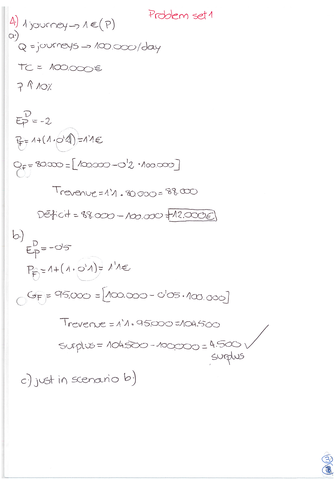 Problem set 1
4) 1 journey → 1€ (P)
a)
Q = journeys → 100.000/day
TC = 100.000€
P ↑ 10%
E_P^D = -2
P_F = 1+(1·0'1) = 1'1€
Q_F = 80.000 = [100.000 - 0'2 · 100.000]
Trevenue = 1'1 · 80.000 = 88.000
Déficit = 88.000 - 100.000 = -12.000€
b)
E_P^D = -0'5
P_F = 1+(1·0'1) = 1'1€
Q_F = 95.000 = [100.000 - 0'05 · 100.000]
Trevenue = 1'1 · 95.000 = 104.500
surplus = 104.500 - 100000 = 4.500 ✓
surplus
c) just in scenario b)